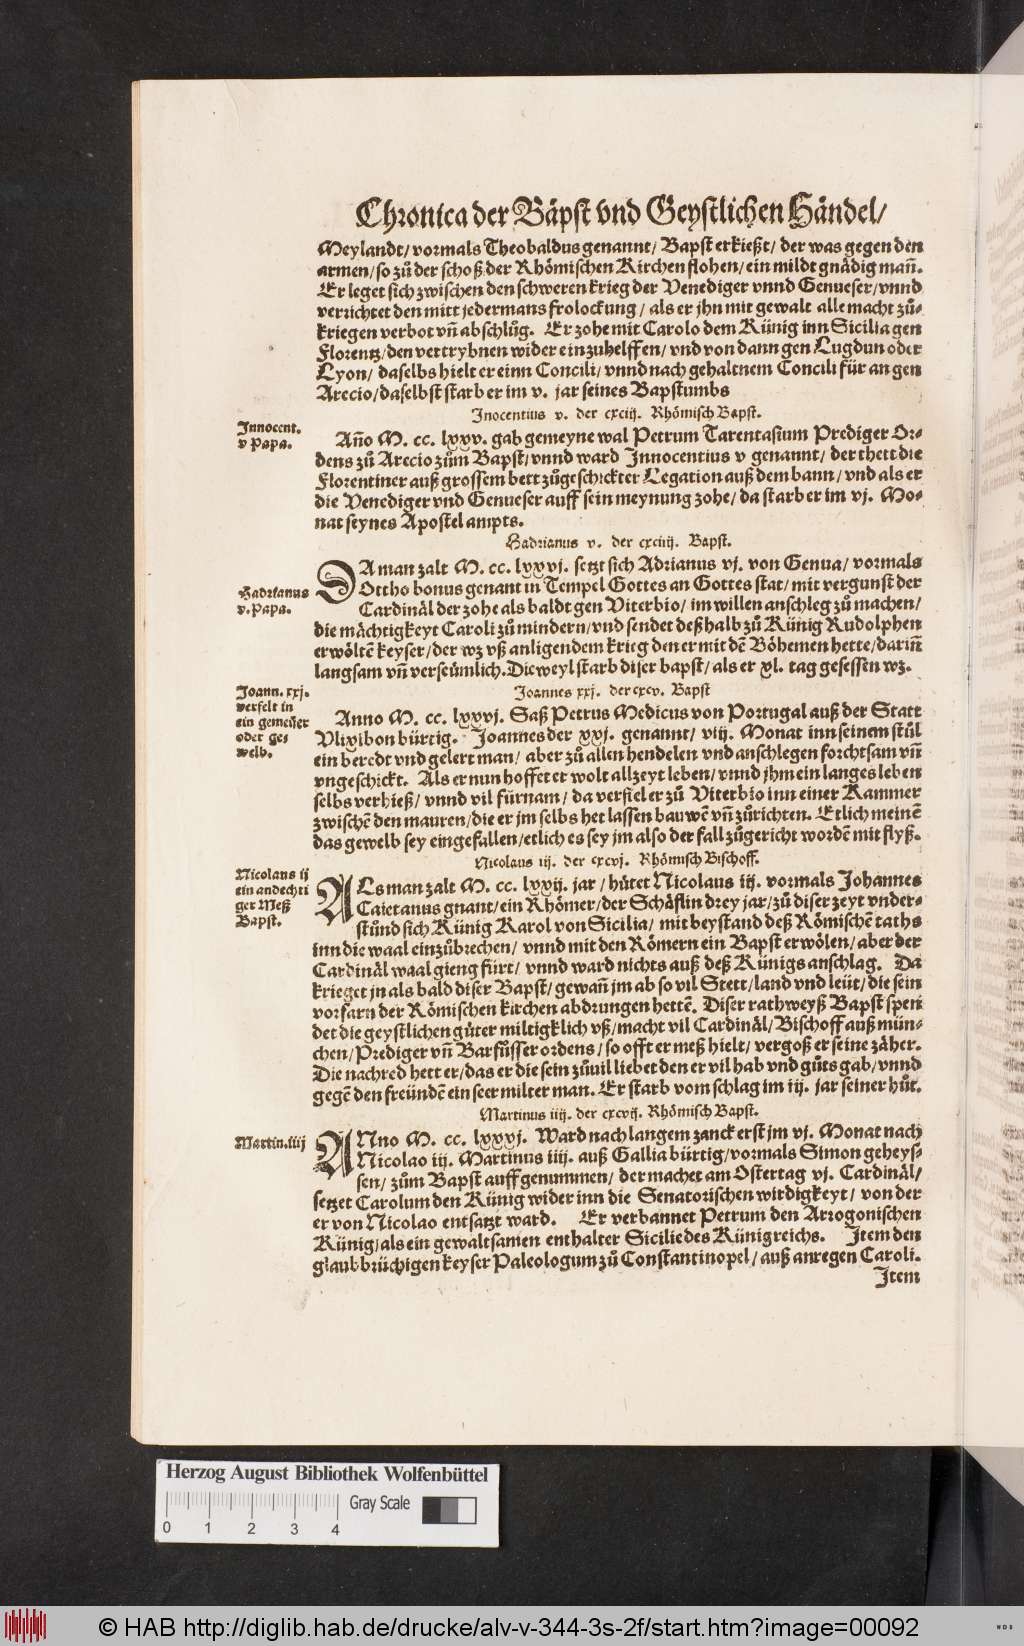 Chronica der Bäpst vnd Geystlichen Händel/
Meylandt/ vormals Theobaldus genannt/ Bapst erkießt/ der was gegen den
armen/ so zů der schoß der Rhömischen Kirchen flohen/ ein mildt gnädig mañ.
Er leget sich zwischen den schweren krieg der Venediger vnnd Genueser/ vnnd
verrichtet den mitt jedermans frolockung/ als er jhn mit gewalt alle macht zů-
kriegen verbot vñ abschlůg. Er zohe mit Carolo dem Künig inn Sicilia gen
Florentz/ den vertrybnen wider einzuhelffen/ vnd von dann gen Lugdun oder
Lyon/ daselbs hielt er einn Concili/ vnnd nach gehaltnem Concili für an gen
Arecio/ daselbst starb er im v. jar seines Bapstumbs
Inocentius v. der cxciij. Rhömisch Bapst.
Innocent.
v Papa.
Año M. cc. lxxv. gab gemeyne wal Petrum Tarentasium Prediger Or-
dens zů Arecio zům Bapst/ vnnd ward Innocentius v genannt/ der thett die
Florentiner auß grossem bett zůgeschickter Legation auß dem bann/ vnd als er
die Venediger vnd Genueser auff sein meynung zohe/ da starb er im vj. Mo-
nat seynes Apostel ampts.
Hadrianus v. der cxciiij. Bapst.
Hadrianus
v. Papa.
DA man zalt M. cc. lxxvj. setzt sich Adrianus vj. von Genua/ vormals
Ottho bonus genant in Tempel Gottes an Gottes stat/ mit vergunst der
Cardinäl der zohe als baldt gen Viterbio/ im willen anschleg zů machen/
die mächtigkeyt Caroli zů mindern/ vnd sendet deßhalb zů Künig Rudolphen
erwölten keyser/ der wz vß anligendem krieg den er mit dē Böhemen hette/ dariñ
langsam vñ verseümlich. Dieweyl starb diser bapst/ als er xl. tag gesessen wz.
Joannes xxj. der cxcv. Bapst
Joann. xxj.
verfelt in
ein gemeüer
oder ge-
welb.
Anno M. cc. lxxvj. Saß Petrus Medicus von Portugal auß der Statt
Vlixibon bürtig. Joannes der xxj. genannt/ viij. Monat inn seinem stůl
ein beredt vnd gelert man/ aber zů allen hendelen vnd anschlegen forchtsam vñ
vngeschickt. Als er nun hoffet er wolt allzeyt leben/ vnnd jhm ein langes leben
selbs verhieß/ vnnd vil fürnam/ da verfiel er zů Viterbio inn einer Kammer
zwischē den mauren/ die er jm selbs het lassen bauwē vñ zůrichten. Etlich meinē
das gewelb sey eingefallen/ etlich es sey jm also der fall zůgericht wordē mit flyß.
Nicolaus iij. der cxcvj. Rhömisch Bischoff.
Nicolaus ij
ein andechti
ger Meß
Bapst.
ALs man zalt M. cc. lxxij. jar/ hůtet Nicolaus iij. vormals Johannes
Caietanus gnant/ ein Rhömer/ der Schäflin drey jar/ zů diser zeyt vnder-
stůnd sich Künig Karol von Sicilia/ mit beystand deß Römischē raths
inn die waal einzůbrechen/ vnnd mit den Römern ein Bapst erwölen/ aber der
Cardinäl waal gieng fürt/ vnnd ward nichts auß deß Künigs anschlag. Da
krieget jn als bald diser Bapst/ gewañ jm ab so vil Stett/ land vnd leüt/ die sein
vorfarn der Römischen kirchen abdrungen hettē. Diser rathweyß Bapst spen
det die geystlichen gůter miltigklich vß/ macht vil Cardinäl/ Bischoff auß mün-
chen/ Prediger vñ Barfůsser ordens/ so offt er meß hielt/ vergoß er seine zäher.
Die nachred hett er/ das er die sein zůuil liebet den er vil hab vnd gůts gab/ vnnd
gegē den freündē ein seer milter man. Er starb vom schlag im iij. jar seiner hůt.
Martinus iiij. der cxcvij. Rhömisch Bapst.
Martin. iiij
ANno M. cc. lxxxj. Ward nach langem zanck erst jm vj. Monat nach
Nicolao iij. Martinus iiij. auß Gallia bürtig/ vormals Simon geheys-
sen/ zům Bapst auffgenummen/ der machet am Ostertag vj. Cardinäl/
setzet Carolum den Künig wider inn die Senatorischen wirdigkeyt/ von der
er von Nicolao entsatzt ward. Er verbannet Petrum den Arrogonischen
Künig/ als ein gewaltsamen enthalter Sicilie des Künigreichs. Item den
glaubbrüchigen keyser Paleologum zů Constantinopel/ auß anregen Caroli.
Item
Herzog August Bibliothek Wolfenbüttel
Gray Scale
0 1 2 3 4
© HAB http://diglib.hab.de/drucke/alv-v-344-3s-2f/start.htm?image=00092